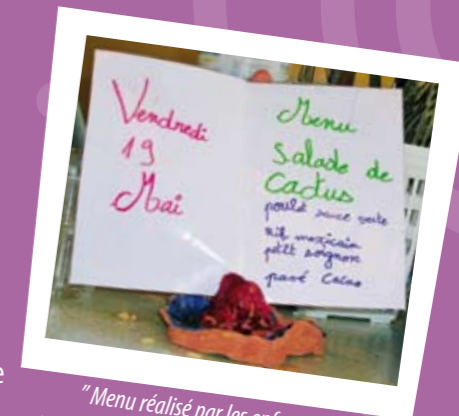 Vendredi
19
Mai
Menu
Salade de
Cactus
poulet sauce verte
riz mexicain
petit soignon
pavé Cacao
"Menu réalisé par les enf